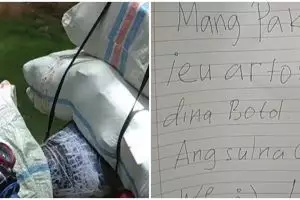 Mang Pak
ieu arto
dina Botol
Angsulna